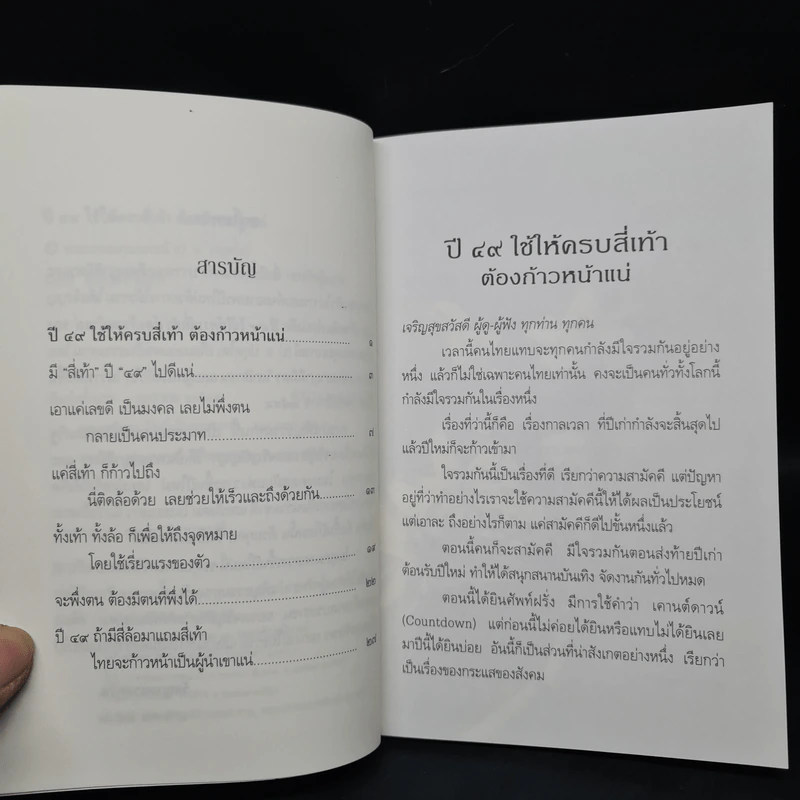 สารบัญ
ปี ๔๙ ใช้ให้ครบสี่เท้า ต้องก้าวหน้าแน่.................... ๑
มี “สี่เท้า” ปี “๔๙” ไปดีแน่.................... ๓
เอาแค่เลขดี เป็นมงคล เลยไม่พึ่งตน
กลายเป็นคนประมาท.................... ๗
แค่สี่เท้า ก็ก้าวไปถึง
นี่ติดล้อด้วย เลยช่วยให้เร็วและถึงด้วยกัน........... ๑๓
ทั้งเท้า ทั้งล้อ ก็เพื่อให้ถึงจุดหมาย
โดยใช้เรี่ยวแรงของตัว .................... ๑๙
จะพึ่งตน ต้องมีตนที่พึ่งได้.................... ๒๒
ปี ๔๙ ถ้ามีสี่ล้อมาแถมสี่เท้า
ไทยจะก้าวหน้าเป็นผู้นำเขาแน่.................... ๒๗
ปี ๔๙ ใช้ให้ครบสี่เท้า
ต้องก้าวหน้าแน่
เจริญสุขสวัสดี ผู้ดู-ผู้ฟัง ทุกท่าน ทุกคน
เวลานี้คนไทยแทบจะทุกคนกำลังมีใจรวมกันอยู่อย่าง
หนึ่ง แล้วก็ไม่ใช่เฉพาะคนไทยเท่านั้น คงจะเป็นคนทั่วทั้งโลกนี้
กำลังมีใจรวมกันในเรื่องหนึ่ง
เรื่องที่ว่านี้ก็คือ เรื่องกาลเวลา ที่ปีเก่ากำลังจะสิ้นสุดไป
แล้วปีใหม่ก็จะก้าวเข้ามา
ใจรวมกันนี้เป็นเรื่องที่ดี เรียกว่าความสามัคคี แต่ปัญหา
อยู่ที่ว่าทำอย่างไรเราจะใช้ความสามัคคีนี้ให้ได้ผลเป็นประโยชน์
แต่เอาละ ถึงอย่างไรก็ตาม แค่สามัคคีก็ดีไปขั้นหนึ่งแล้ว
ตอนนี้คนก็จะสามัคคี มีใจรวมกันตอนส่งท้ายปีเก่า
ต้อนรับปีใหม่ ทำให้ได้สนุกสนานบันเทิง จัดงานกันทั่วไปหมด
ตอนนี้ได้ยินศัพท์ฝรั่ง มีการใช้คำว่า เคานต์ดาวน์
(Countdown) แต่ก่อนนี้ไม่ค่อยได้ยินหรือแทบไม่ได้ยินเลย
มาปีนี้ได้ยินบ่อย อันนี้ก็เป็นส่วนที่น่าสังเกตอย่างหนึ่ง เรียกว่า
เป็นเรื่องของกระแสของสังคม